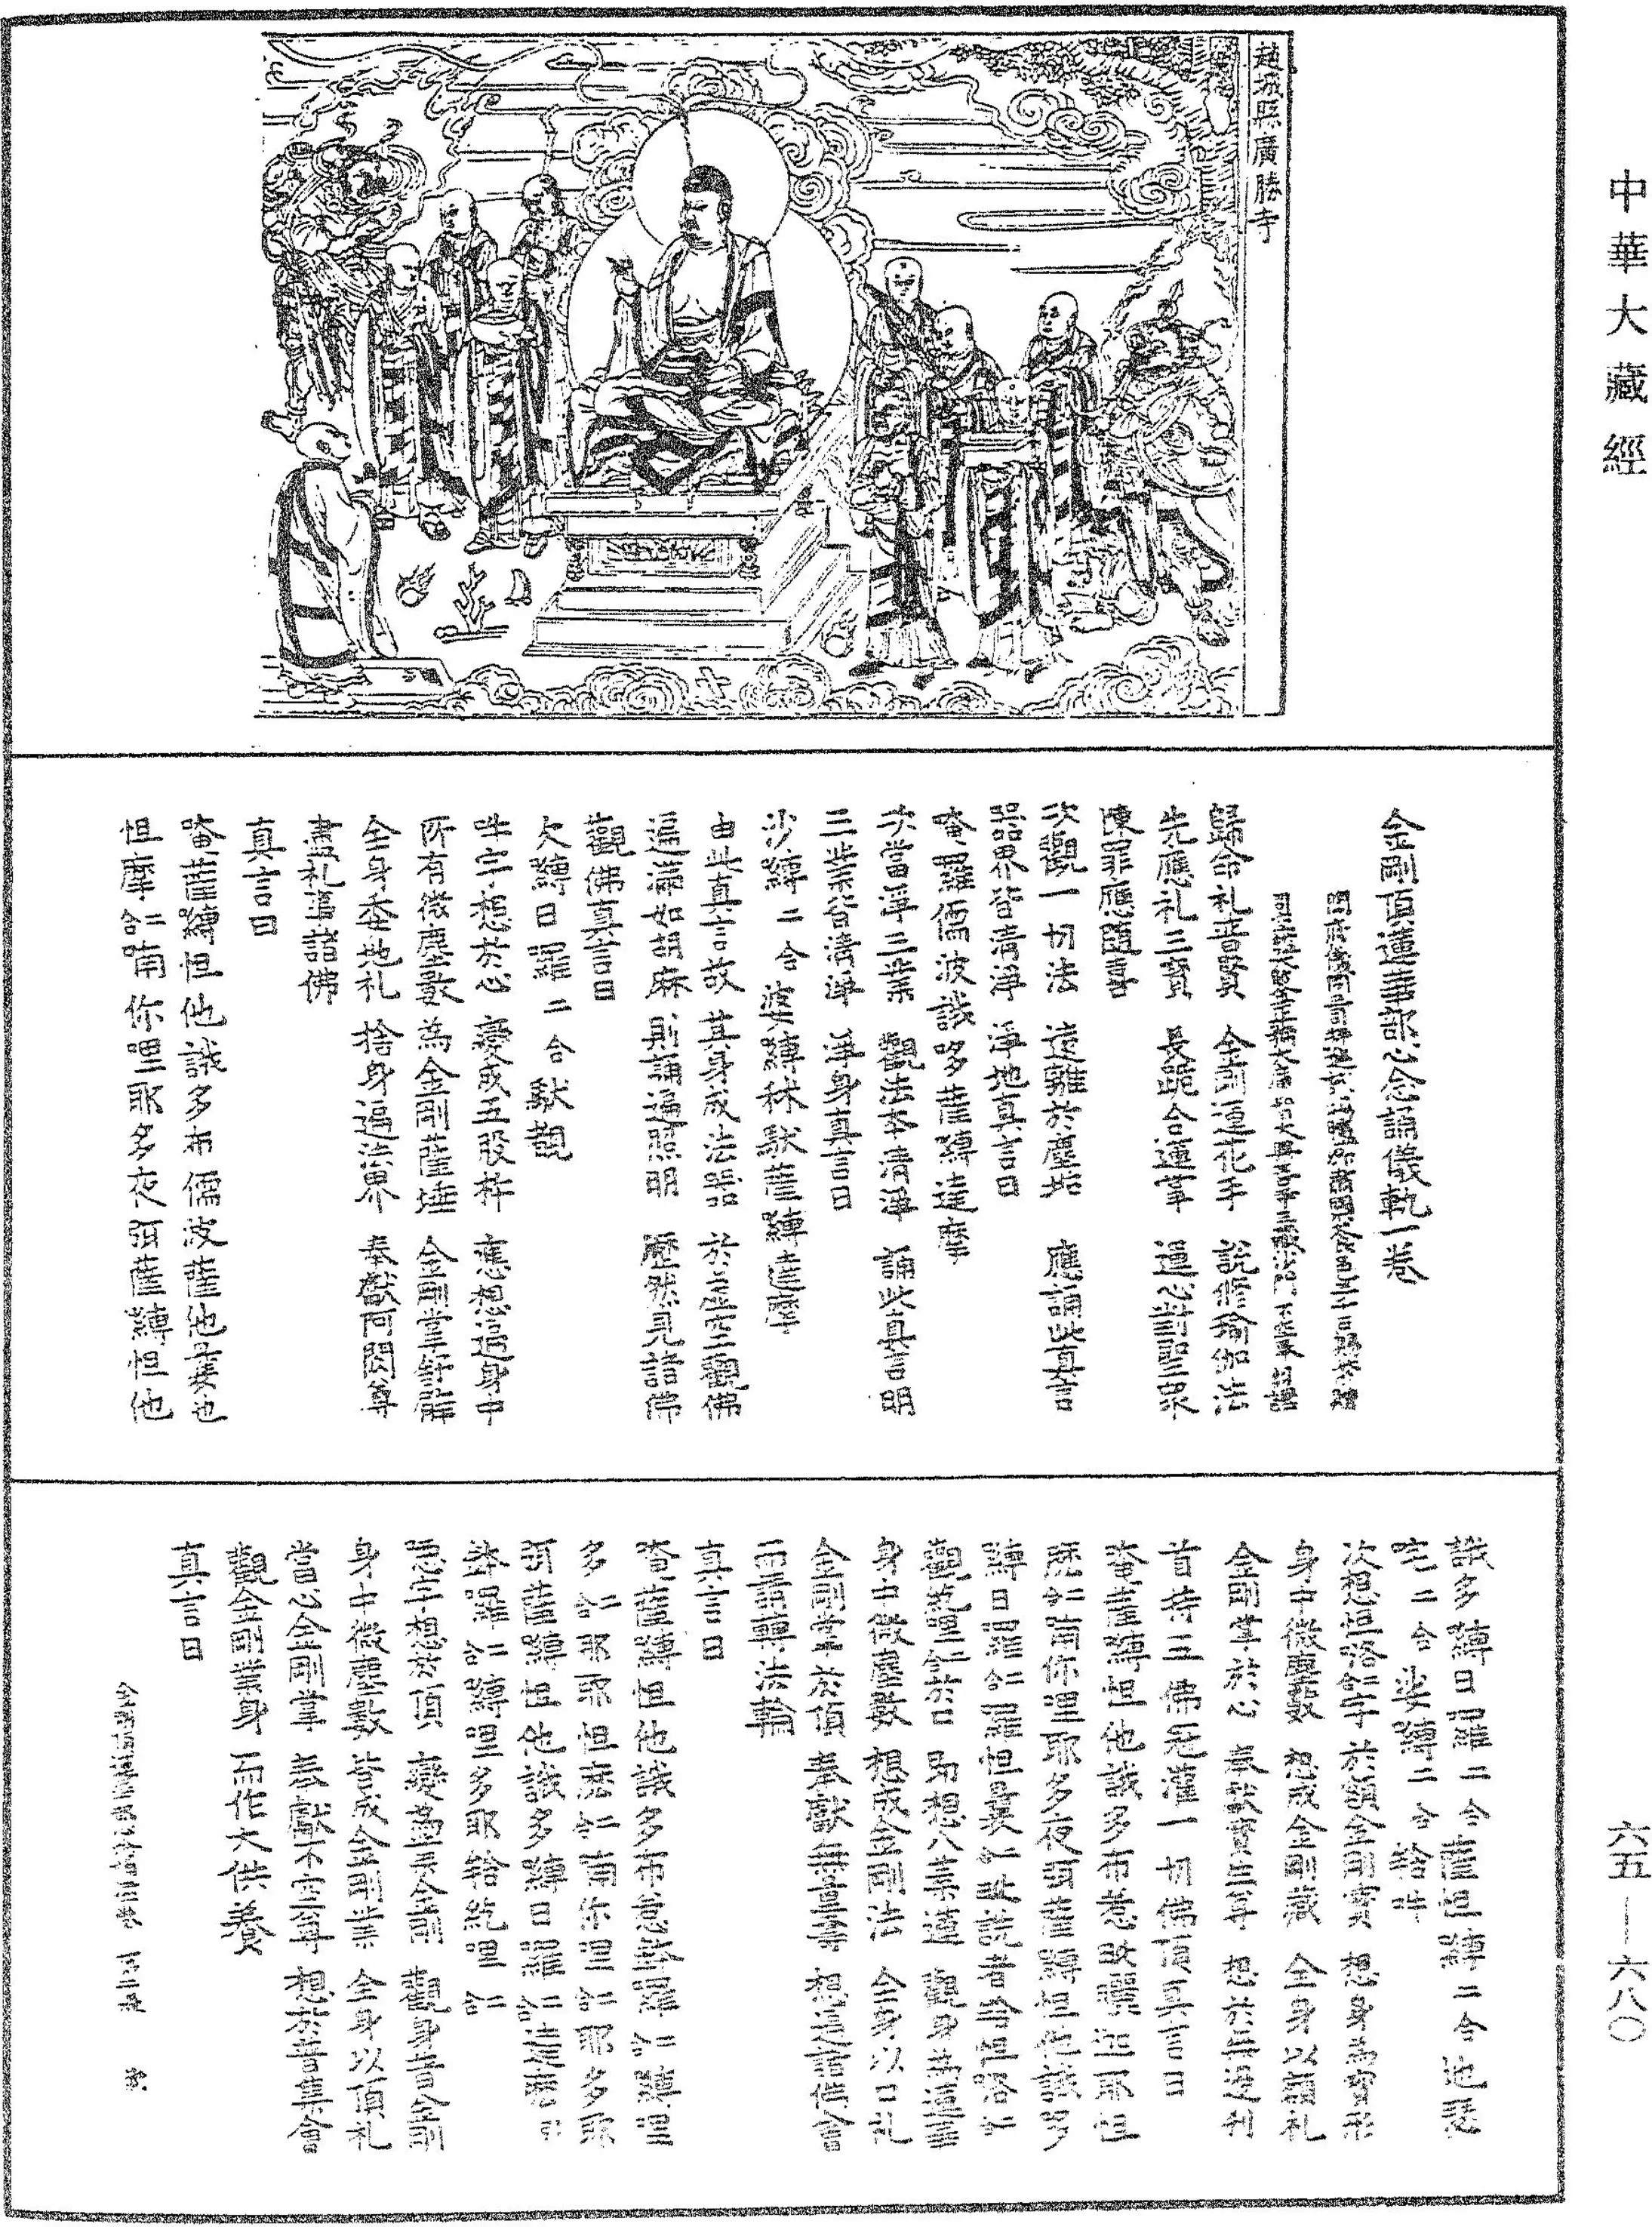 中華大藏經
趙城縣廣勝寺
金剛頂蓮華部心念誦儀軌一卷
歸命礼普賢 金剛蓮花手 說修瑜伽法
先應礼三寶 長跪合蓮掌 運心對聖眾
陳罪應隨喜
次觀一切法 遠離於塵垢 應誦此真言
器界皆清淨 淨地真言曰
唵羅儒波誐哆薩嚩達摩
次當淨三業 觀法本清淨 誦此真言明
三業皆清淨 淨身真言曰
沙嚩二合婆嚩秫馱薩嚩達摩
由此真言故 其身成法器 於虛空觀佛
遍滿如胡麻 則誦遍照明 歷然見諸佛
觀佛真言曰
欠嚩日羅二合馱觀
吽字想於心 變成五股杵 應想遍身中
所有微塵數 為金剛薩埵 金剛掌舒臂
全身委地礼 捨身遍法界 奉獻阿閦尊
盡礼事諸佛
真言曰
唵薩嚩怛他誐多布儒波薩他曩也
怛摩合二喃你哩耶多夜弭薩嚩怛他
誐多嚩日羅二合薩怛嚩二合地瑟
吒二合娑嚩二合𤚥吽
次想怛洛合二字於額金剛寶 想身為寶形
身中微塵數 想成金剛藏 全身以額礼
金剛掌於心 奉獻寶生尊 想於無邊刹
首持三佛冠灌一切佛頂真言曰
唵薩嚩怛他誐多布惹毗曬迦耶怛
麼合二喃你里耶多夜弭薩嚩怛他誐多
嚩日羅合二羅怛曩合二毗詵者𤚥怛洛合二
觀紇哩合二於口 即想八葉蓮 觀身為蓮華
身中微塵數 想成金剛法 全身以口礼
金剛掌於頂 奉獻無量壽 想遍諸佛會
而請轉法輪
真言曰
唵薩嚩怛他誐多布惹鉢羅合二嚩里
多合二耶耶怛麼合二喃你里合二耶多耶
弭薩嚩怛他誐多嚩日羅合二達麼引
鉢羅合二嚩里多耶𤚥紇里合二
惡字想於頂 變為業金剛 觀身普金剛
身中微塵數 皆成金剛業 全身以頂礼
當心金剛掌 奉獻不空尊 想於普集會
觀金剛業身 而作大供養
真言曰
六五—六八〇